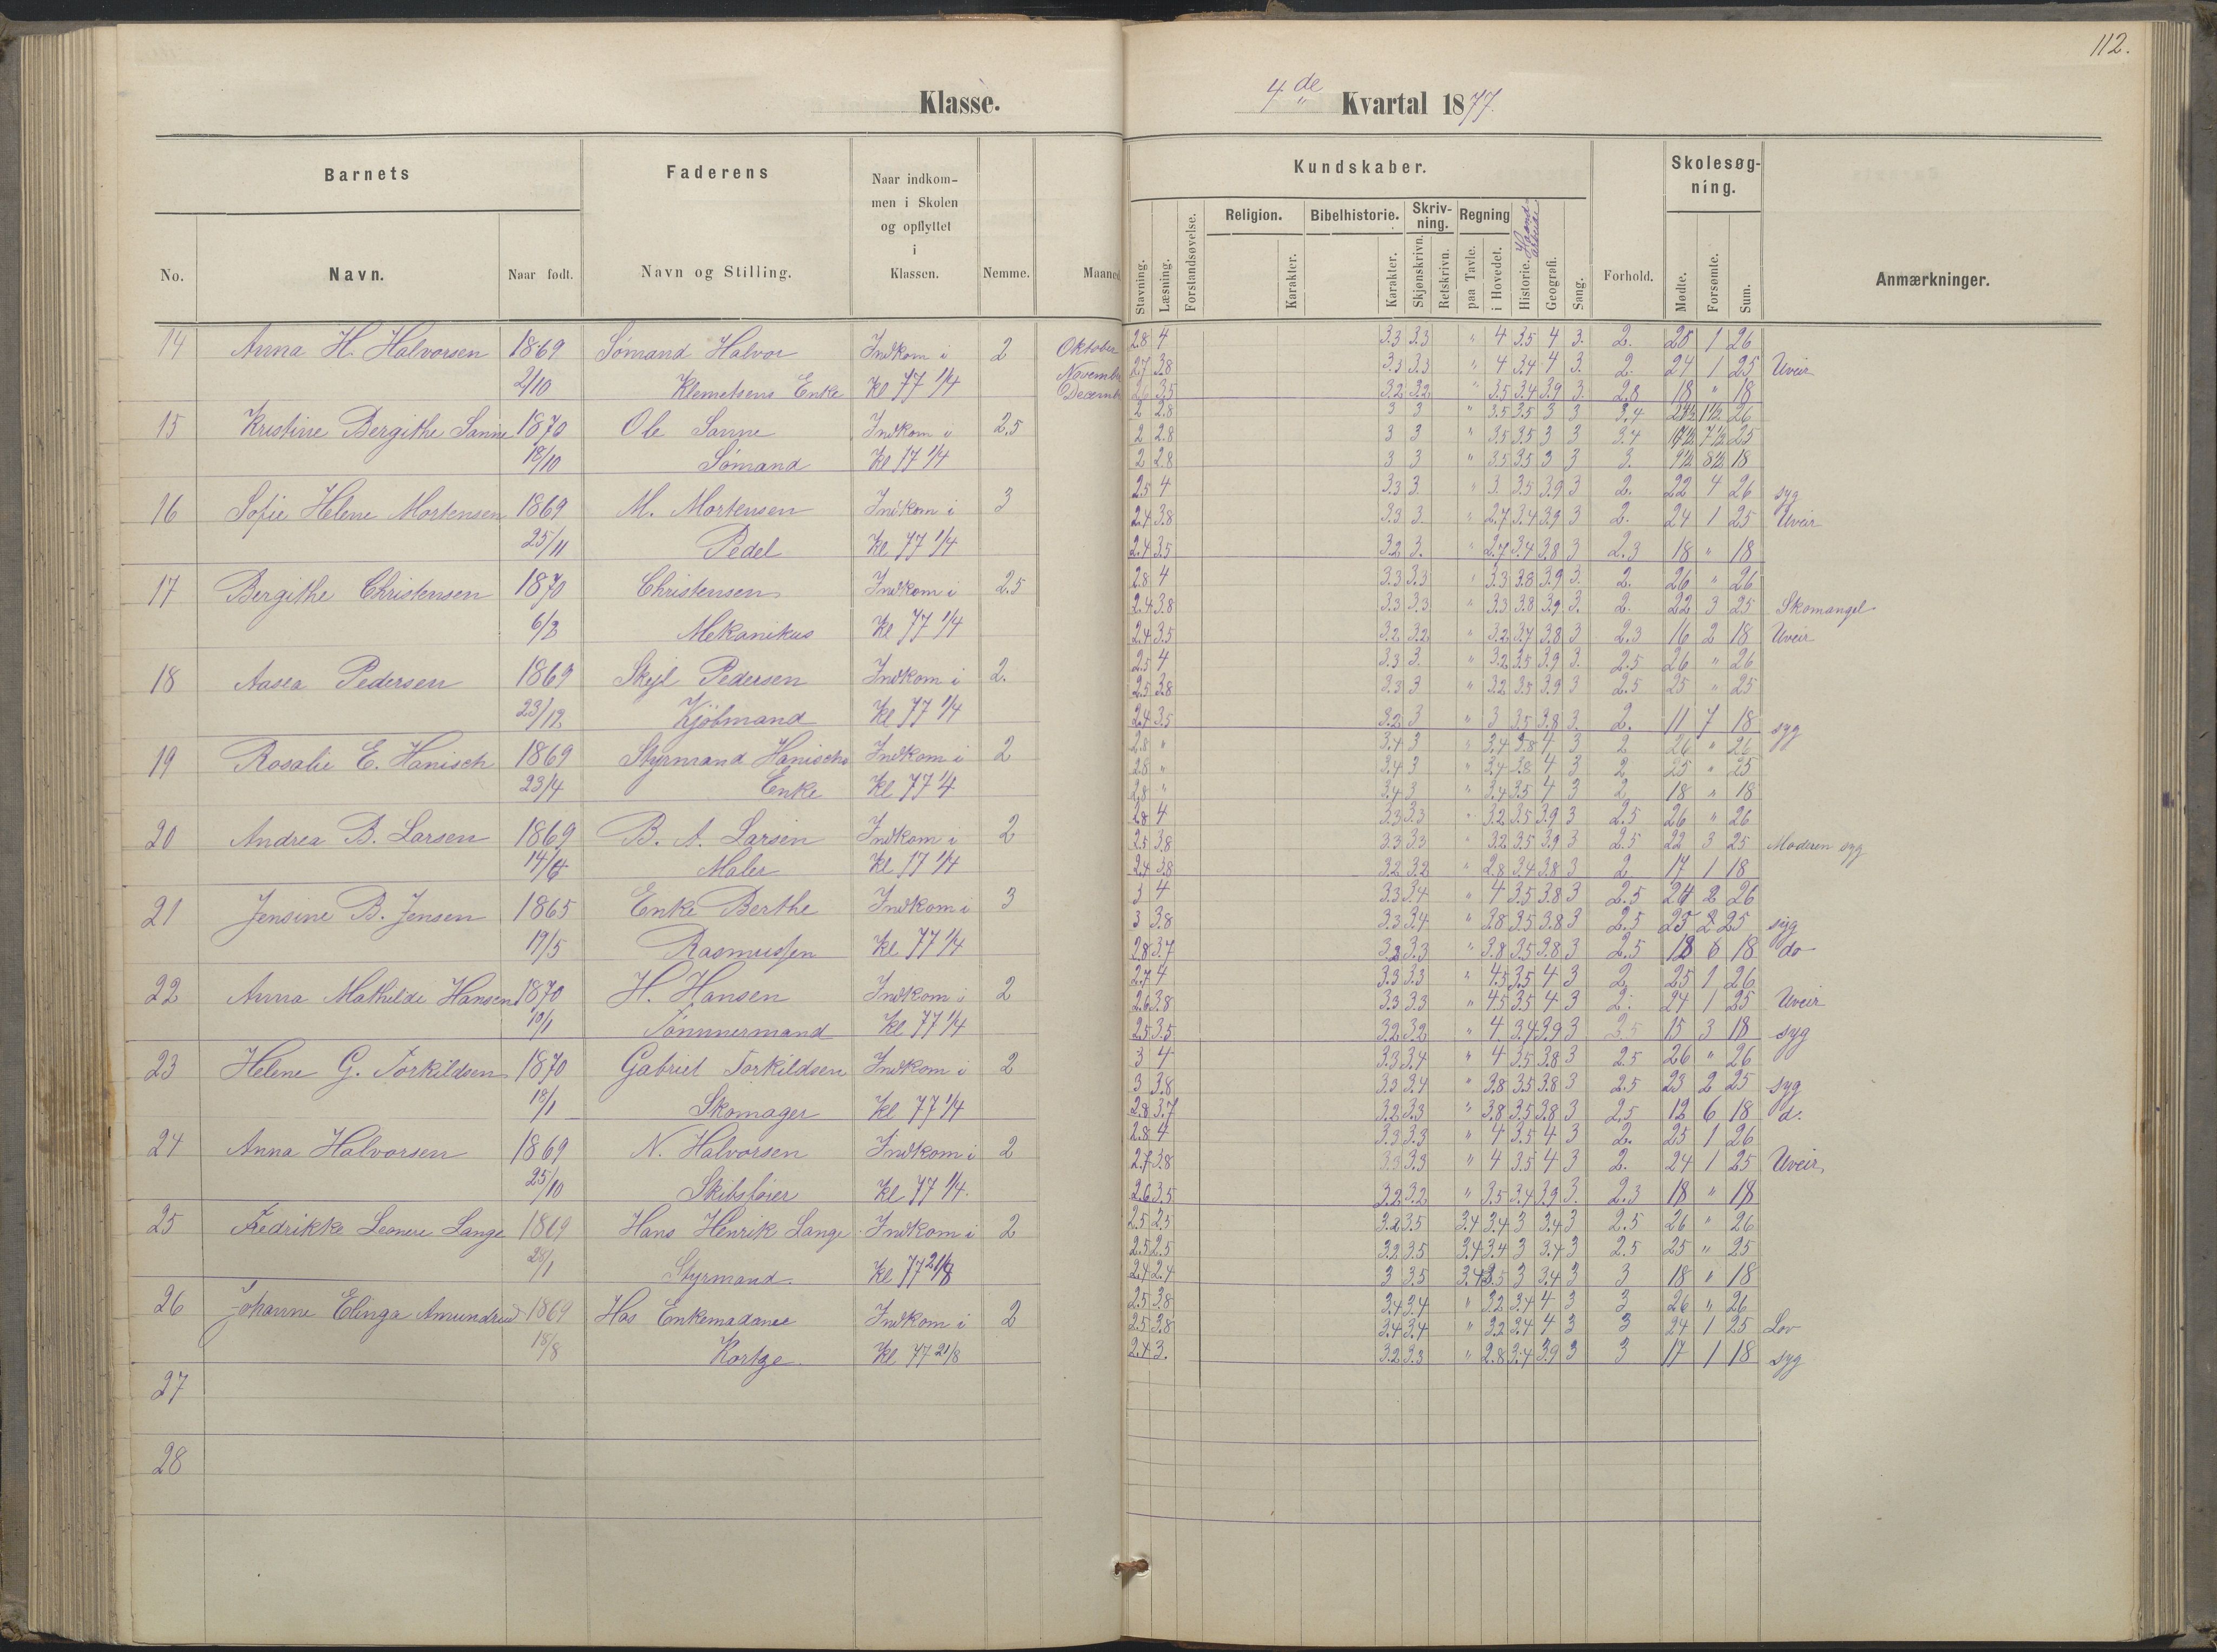 112.
Klasse.
4de Kvartal 1877.
Barnets
Faderens
Naar indkom-
men i Skolen
og opflyttet
i
Klassen.
No.
Navn.
Naar født.
Navn og Stilling.
Nemme.
Maaned
Kundskaber.
Skolesøg-
ning.
Stavning.
Læsning.
Forstandsøvelse.
Religion.
Karakter.
Bibelhistorie.
Karakter.
Skriv-
ning.
Skjønskrivn.
Retskrivn.
Regning
paa Tavle.
i Hovedet.
Historie.
Haand-
arbeide
Geografi.
Sang.
Forhold.
Mødte.
Forsømte.
Sum.
Anmærkninger.
14 Anna H. Halvorsen 1869 Sømand Halvor Indkom i 2 Oktober 2.8 4 3.3 3.3 " 4 3.5 4 3. 2. 25 1 26
November 2.7 3.8 3.3 3.3 " 4 3.4 4 3. 2. 24 1 25 Uveir
2/10 Klemetsens Enke Kl 77 1/4 2.6 3.5 3.2 3.2 " 3.5 3.4 3.9 3. 2.8 18 " 18
15 Kristine Bergithe Sanne 1870 Ole Sanne Indkom i 2.5 2 2.8 3 3 " 3.5 3.5 3 3 3.4 24½ 1½ 26
2 2.8 3 3 " 3.5 3.5 3 3 3.4 17½ 7½ 25
18/10 Sømand Kl 77 1/4 2 2.8 3 3 " 3.5 3.5 3 3 3. 9½ 8½ 18
16 Sofie Helene Mortensen 1869 M. Mortensen Indkom i 3 2.5 4 3.3 3. " 3. 3.5 3.9 3 2. 22 4 26 syg
2.4 3.8 3.3 3. " 2.7 3.4 3.9 3 2. 24 1 25 Uveir
25/11 Pedel Kl 77 1/4 2.4 3.5 3.2 3. " 2.7 3.4 3.8 3 2.3 18 " 18
17 Bergithe Christensen 1870 Christensen Indkom i 2.5 2.8 4 3.3 3.3 " 3.3 3.8 3.9 3. 2. 26 " 26
2.4 3.8 3.3 3.3 " 3.3 3.8 3.9 3. 2. 22 3 25 Skomangel
6/2 Mekanikus Kl 77 1/4 2.4 3.5 3.2 3.2 " 3.2 3.7 3.8 3 2.3 16 2 18 Uveir
18 Aasea Pedersen 1869 Skejl Pedersen Indkom i 2. 2.5 4 3.3 3. " 3.2 3.5 3.9 3. 2.5 26 " 26
2.5 3.8 3.3 3 " 3.2 3.5 3.9 3 2.5 25 " 25
23/12 Kjøbmand Kl 77 1/4 2.4 3.5 3.2 3 " 3 3.5 3.8 3. 2. 11 7 18 syg
19 Rosalie E. Hanisch 1869 Styrmand Hanischs Indkom i 2 2.8 " 3.4 3 " 3.4 3.8 4 3 2 26 " 26
2.8 " 3.4 3 " 3.4 3.8 4 3 2 25 " 25
23/4 Enke Kl 77 1/4 2.8 " 3.4 3 " 3.4 3.5 4 3 2 18 " 18
20 Andrea B. Larsen 1869 B. A. Larsen Indkom i 2 2.8 4 3.3 3.3 " 3.2 3.5 3.9 3 2.5 26 " 26
2.5 3.8 3.3 3.3 " 3.2 3.5 3.9 3 2.5 22 3 25 Moderen syg
Maler Kl 77 1/4 2.4 3.8 3.2 3.2 " 2.8 3.4 3.8 3 2 17 1 18
21 Jensine B. Jensen 1865 Enke Berthe Indkom i 3 3 4 3.3 3.4 " 4 3.5 3.8 3 2.5 24 2 26
3 3.8 3.3 3.4 " 3.8 3.5 3.8 3 2.5 25 25 syg
19/5 Rasmussen Kl 77 1/4 2.8 3.7 3.2 3.3 " 3.8 3.5 3.8 3 2.5 6 18 do
22 Anna Mathilde Hansen 1870 H. Hansen Indkom i 2 2.7 4 3.3 3.3 " 4.5 3.5 4 3 2 25 1 26
2.6 3.8 3.3 3.3 " 4.5 3.5 4 3 2. 24 1 25 Uveir
10/1 Tømmermand Kl 77 1/4 2.5 3.5 3.2 3.2 " 4 3.4 3.9 3 2.5 15 3 18 syg
23 Helene G. Torkildsen 1870 Gabriel Torkildsen Indkom i 2 3 4 3.3 3.4 " 4 3.5 3.8 3 2.5 26 " 26
3 3.8 3.3 3.4 " 3.8 3.5 3.8 3 2.5 23 2 25 syg
18/1 Skomager Kl 77 1/4 2.8 3.7 3.2 3.3 " 3.8 3.5 3.8 3 2.5 12 6 18 d.
24 Anna Halvorsen 1869 N. Halvorsen Indkom i 2 2.8 4 3.3 3.3 " 4 3.5 4 3 2. 25 1 26
2.7 3.8 3.3 3.3 " 4 3.5 4 3 2. 24 1 25 Uveir
25/10 Kl 77 1/4. 2.6 3.5 3.2 3.2 " 3.5 3.4 3.9 3. 2.3 18 " 18
25 Fredrikke Leonere Lange 1869 Hans Henrik Lange Indkom i 2 2.5 2.5 3.2 3.5 3.4 3.4 3 3.4 3 2.5 26 " 26
2.5 2.5 3.2 3.5 3.4 3.4 3 3.4 3 2.5 25 " 25
28/1 Styrmand Kl 77 21/8 2.4 2.4 3 3.5 3.4 3.5 3 3.4 3 3 18 " 18
26 Johanne Elinga Amundrud 1869 Hos Enkemadame Indkom i 2 2.5 3.8 3.4 3.4 " 3.2 3.4 4 3 3 26 " 26
2.5 3.8 3.4 3.4 " 3.2 3.4 4 3 3 24 1 25 Lov
18/8 Kortge Kl 77 21/8 2.4 3. 3.2 3.3 " 2.8 3.4 3.9 3 3 17 1 18 syg
27
28